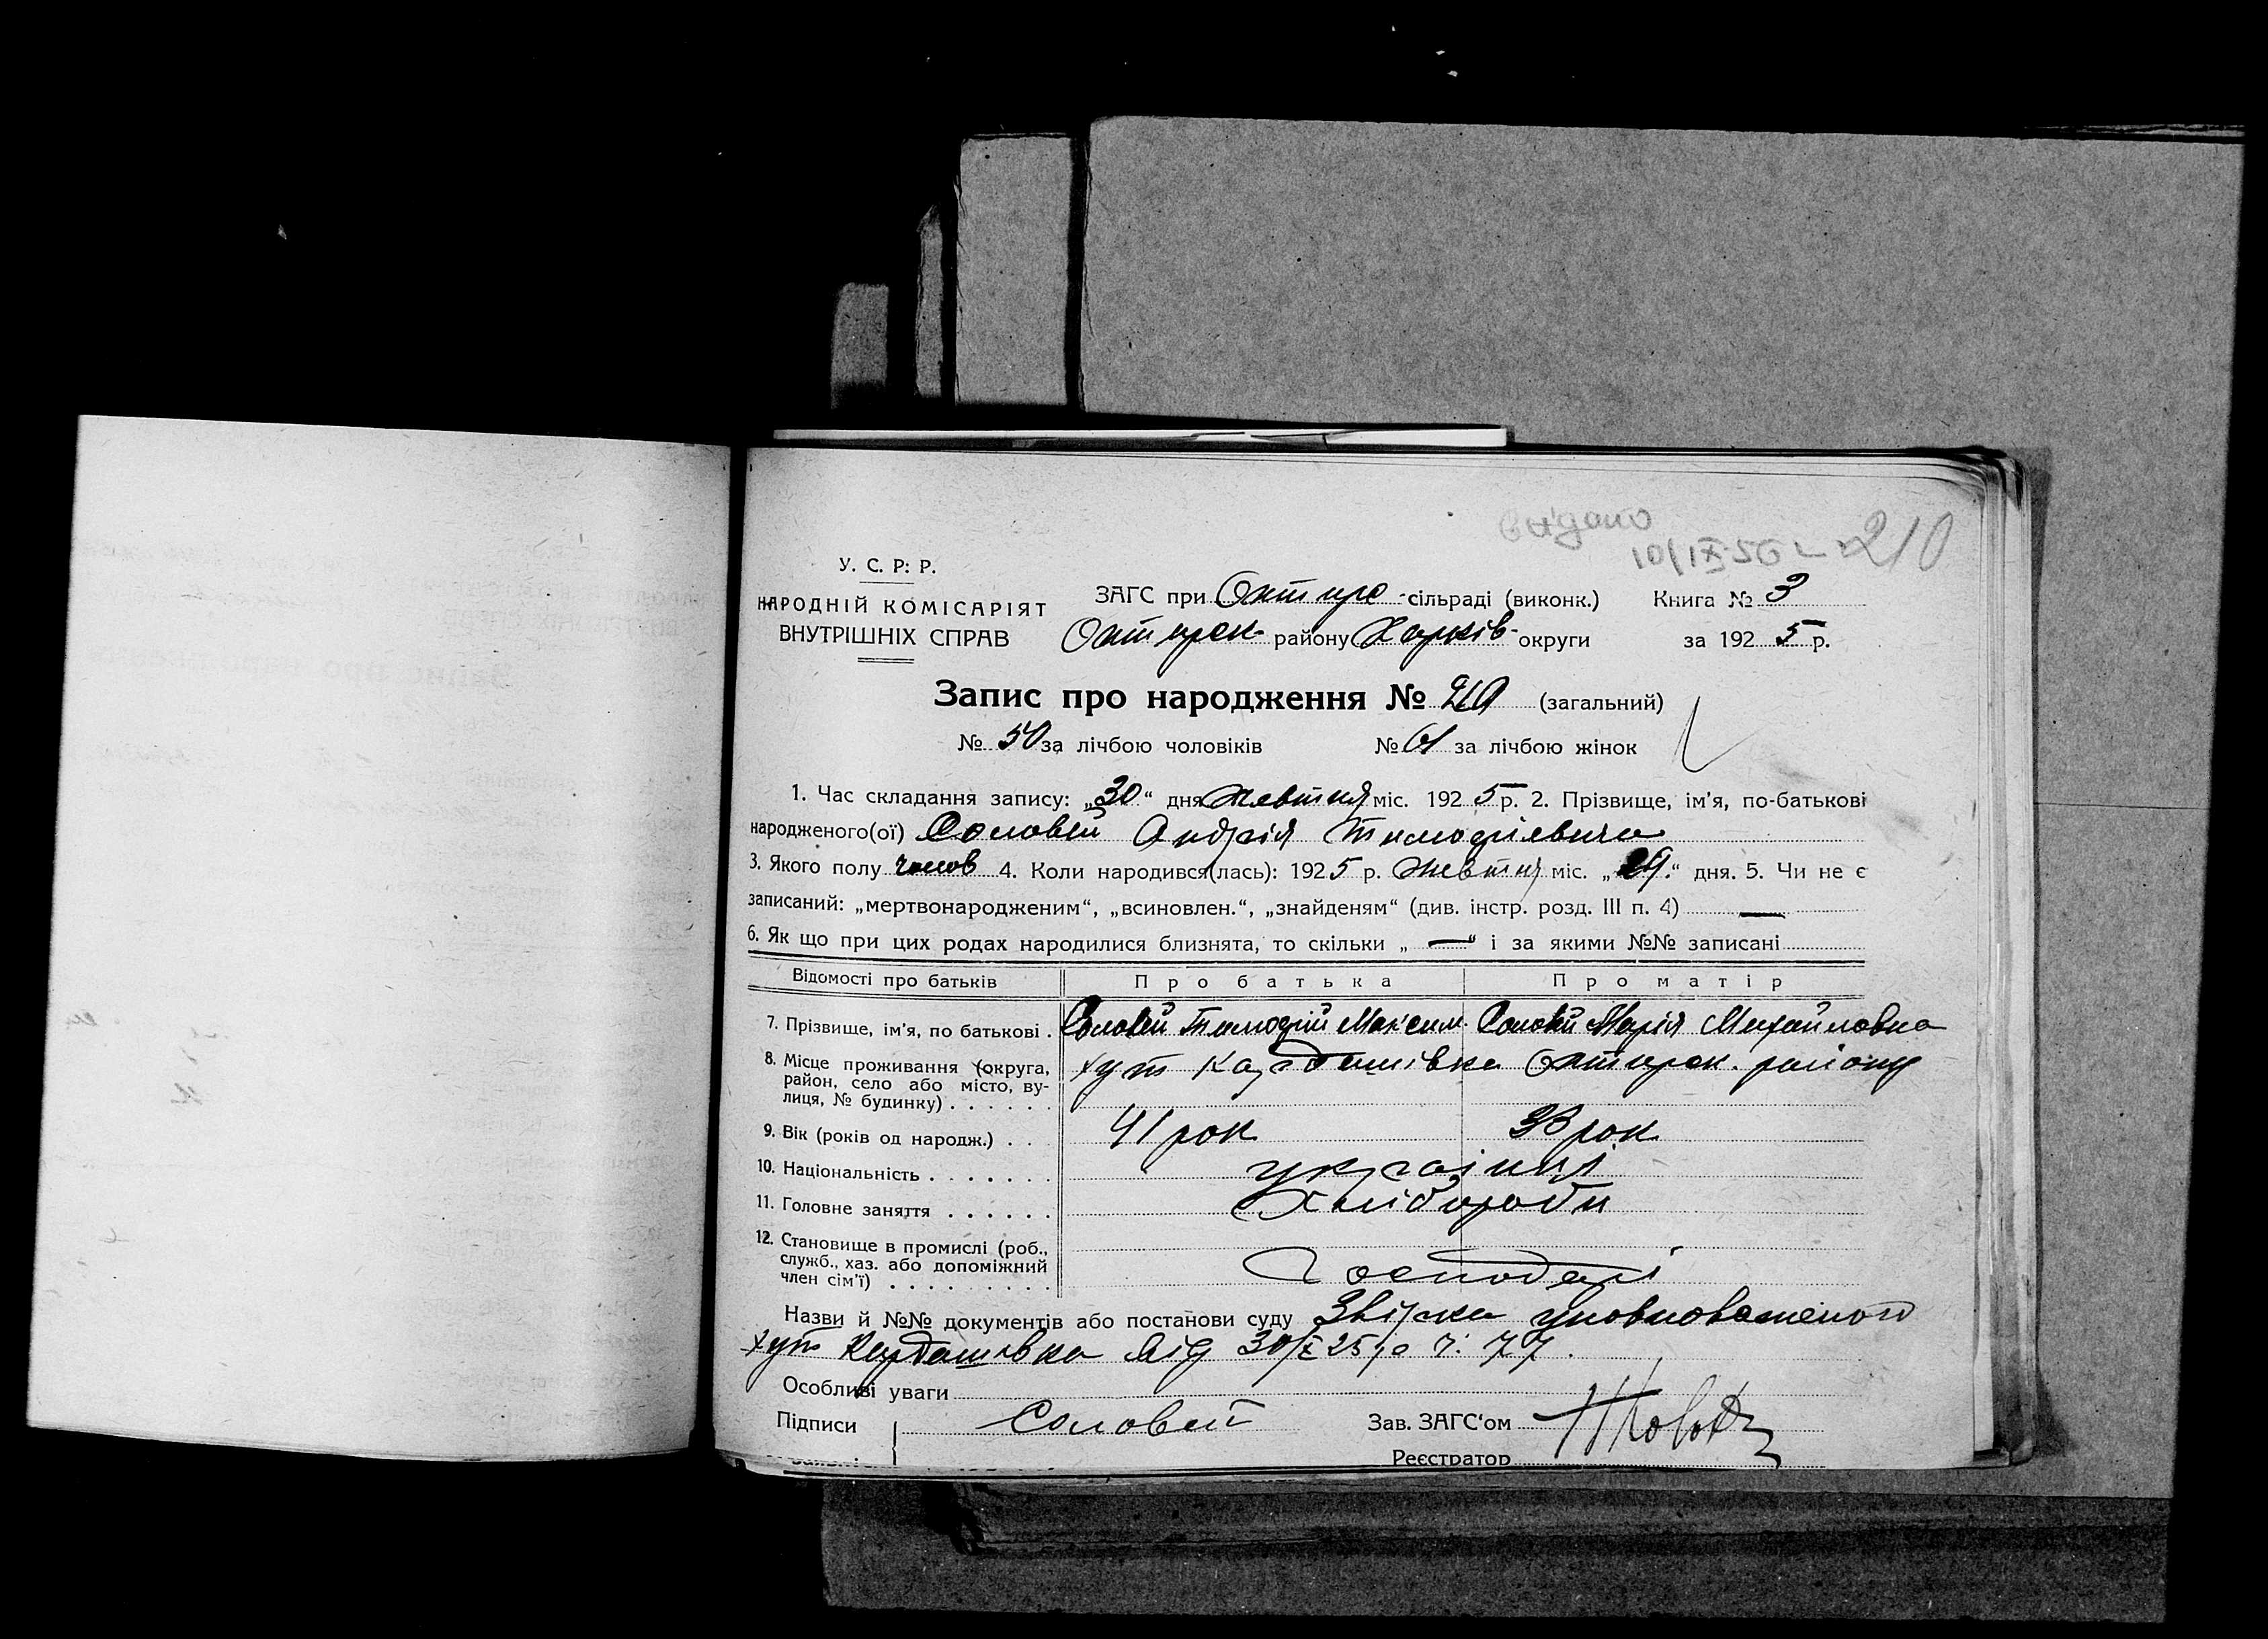 видано
10/IX-56 210
У. С. Р. Р.
НАРОДНІЙ КОМІСАРІЯТ
ВНУТРІШНІХ СПРАВ
ЗАГС при Охтирс -сільраді (виконк.) Книга № 3
Охтирск- району Харків- округи за 1925 р.
Запис про народження № 210 (загальний)
№ 50 за лічбою чоловіків № 61 за лічбою жінок
1. Час складання запису: „30“ дня Жовтня міс. 1925 р. 2. Прізвище, ім'я, по-батькові
народженого(ої) Соловей Андрія Тимофієвича
3. Якого полу чолов 4. Коли народився(лась): 1925 р. Жовтня міс. „29.“ дня. 5. Чи не є
записаний: „мертвонародженим“, „всиновлен.“, „знайденям“ (див. інстр. розд. III п. 4) —
6. Як що при цих родах народилися близнята, то скільки „ — “ і за якими №№ записані
Відомості про батьків Про батька Про матір
7. Прізвище, ім'я, по батькові . Соловей Тимофій Максим. Соловей Марія Михайловна
8. Місце проживання (округа, хут Кардашівка Охтирск. району
район, село або місто, ву-
лиця, № будинку) . . . . . .
9. Вік (років од народж.) . . . 41 рок 38 рок
10. Національність . . . . . . . українці
11. Головне заняття . . . . . . Хлібороби
12. Становище в промислі (роб.,
служб., хаз. або допоміжний
член сім'ї) . . . . . . . . . Господарі
Назви й №№ документів або постанови суду Звірка уповноваженого
хут Кардашівка від 30/X 25 р ч. 77.
Особливі уваги
Підписи Соловей Зав. ЗАГС'ом
Реєстратор